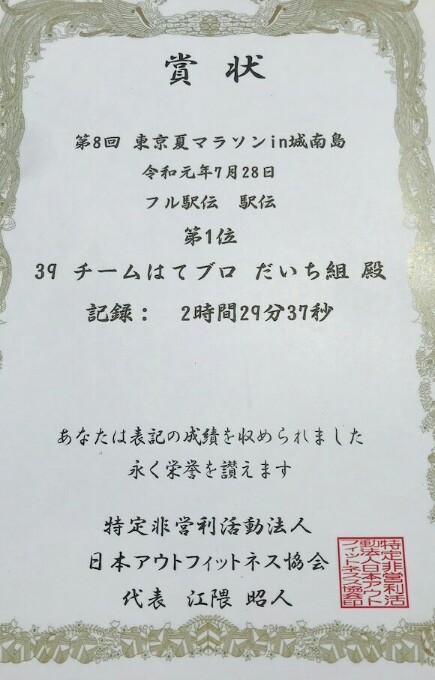 賞状
第8回 東京夏マラソンin城南島
令和元年7月28日
フル駅伝 駅伝
第1位
39 チームはてブロ だいち組 殿
記録： 2時間29分37秒
あなたは表記の成績を収められました
永く栄誉を讃えます
特定非営利活動法人
日本アウトフィットネス協会
代表 江隈 昭人
特定非営利活
動法人日本アウト
フィットネス協会印